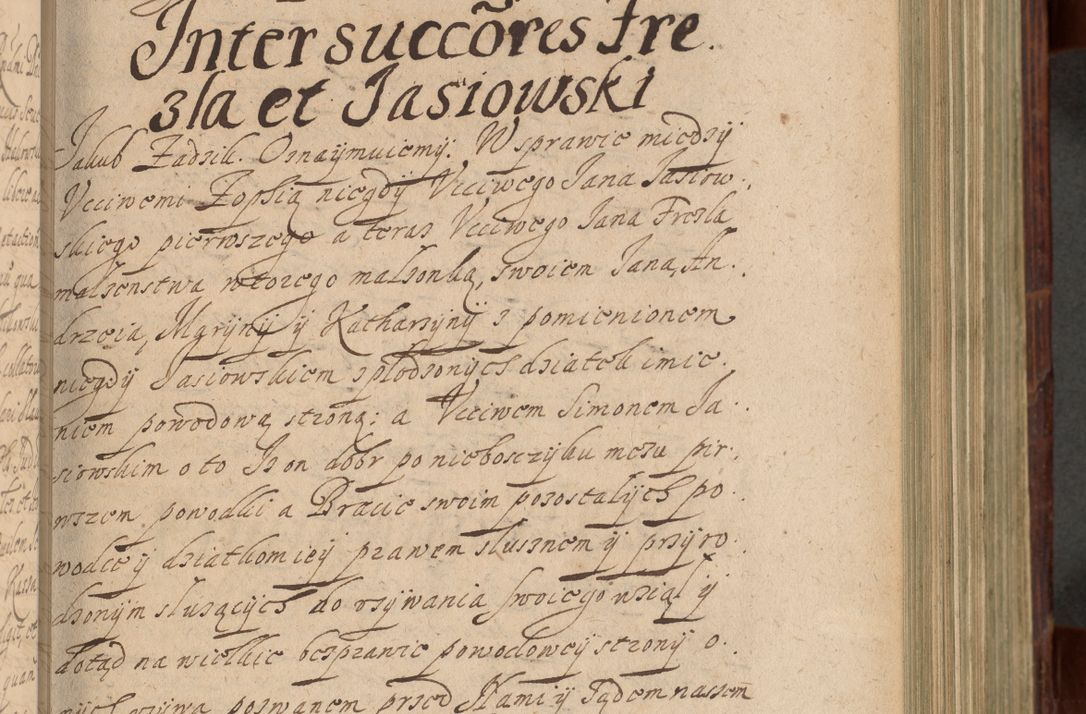 Inter succõres Fre
zla et Jasiowski
Jakub Zadzik. Oznaÿmuiemÿ. W sprawie międzÿ
Ucciwemi Zophią niegdÿ Ucciwego Jana Jasiow
skiego pierwszego a teraz Ucciwego Jana Frezla
małzenstwa wtorego małzonką, swoiem Jana, An
drzeia, Marÿnÿ ÿ Katharzÿnÿ z pomienionem
niegdÿ Jasiowskiem zpłodzonÿch dziatek imie
niem powodową stroną: a Ucciwem Simonem Ja
siowskim o to Iz on dobr po nieboszczÿku męzu pir
wszem powodki a Bracie swoim pozostałÿch po
wodce ÿ dziatkom ieÿ prawem słusznem ÿ przÿro
dzonÿm słuzącÿch do uzÿwania swoiego wziął ÿ
dotąd na wielkie bezprawie powodoweÿ stronÿ o
nÿch uzÿwa pozwanem przed Nami ÿ Sądem naszem